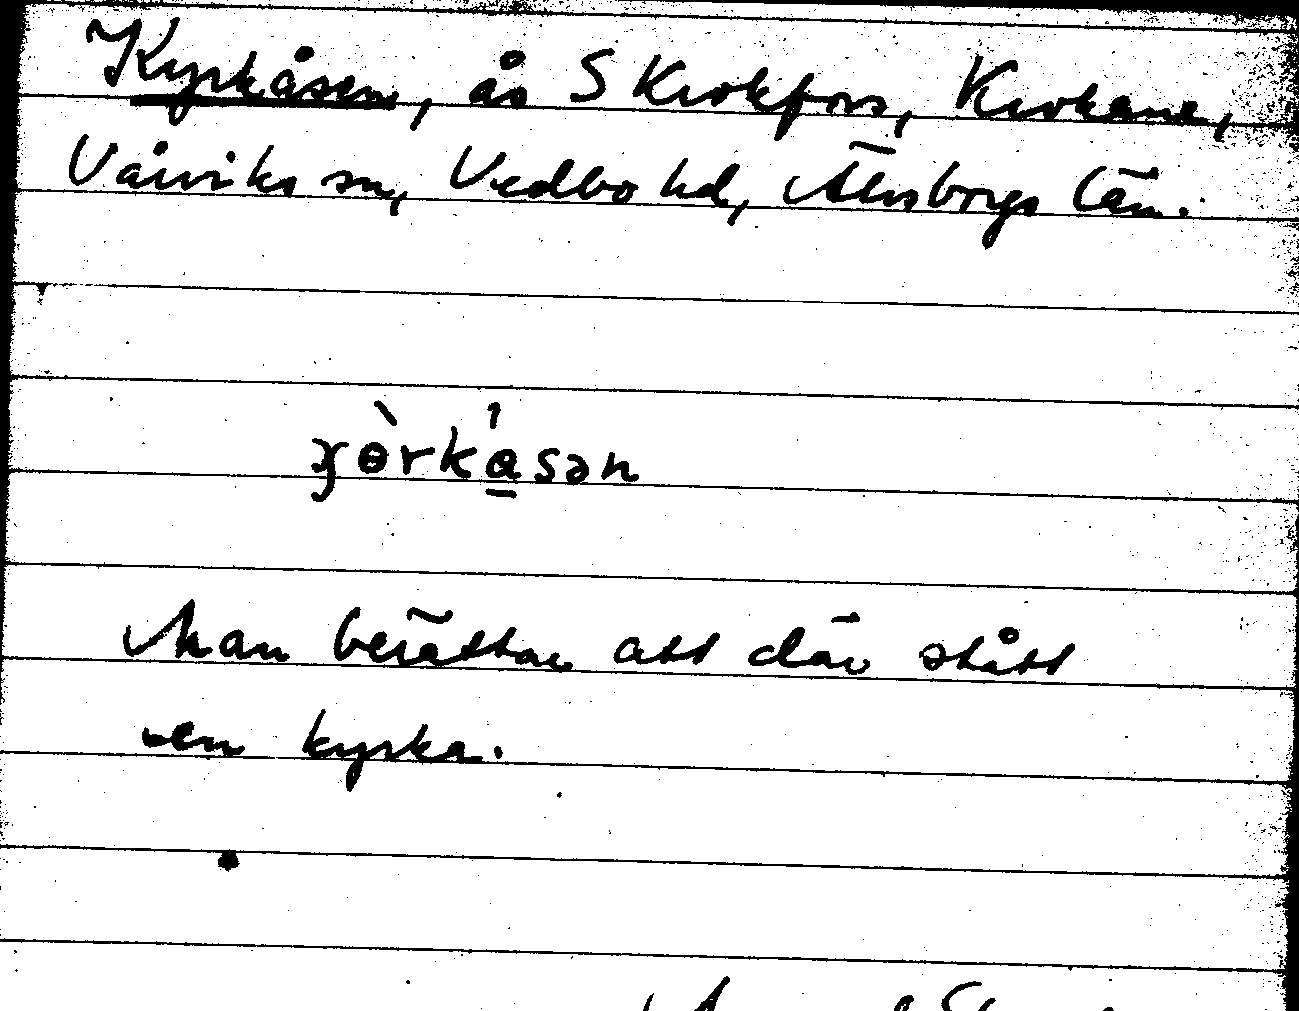 Kyrkåsen, ås S Krokfors, Krokane,
Vårviks sn, Vedbo hd, Älvsborgs län.
Man berättar att där stått
en kyrka.